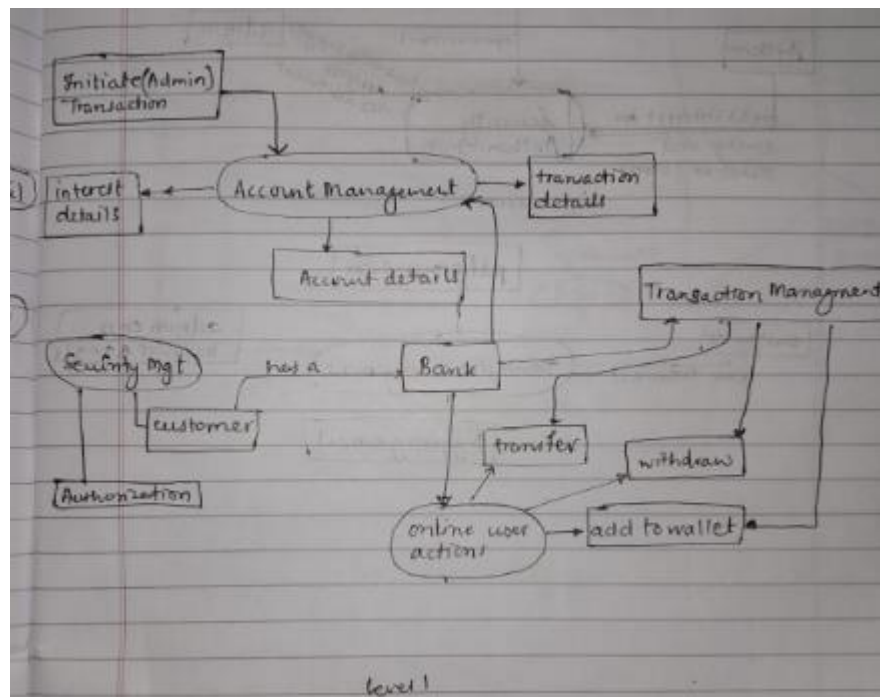 Initiate(Admin)
Transaction
Account Management
interest
details
transaction
details
Account details
Transaction Managment
Security Mgt
has a
Bank
customer
transfer
withdraw
Authorization
online user
actions
add to wallet
level 1